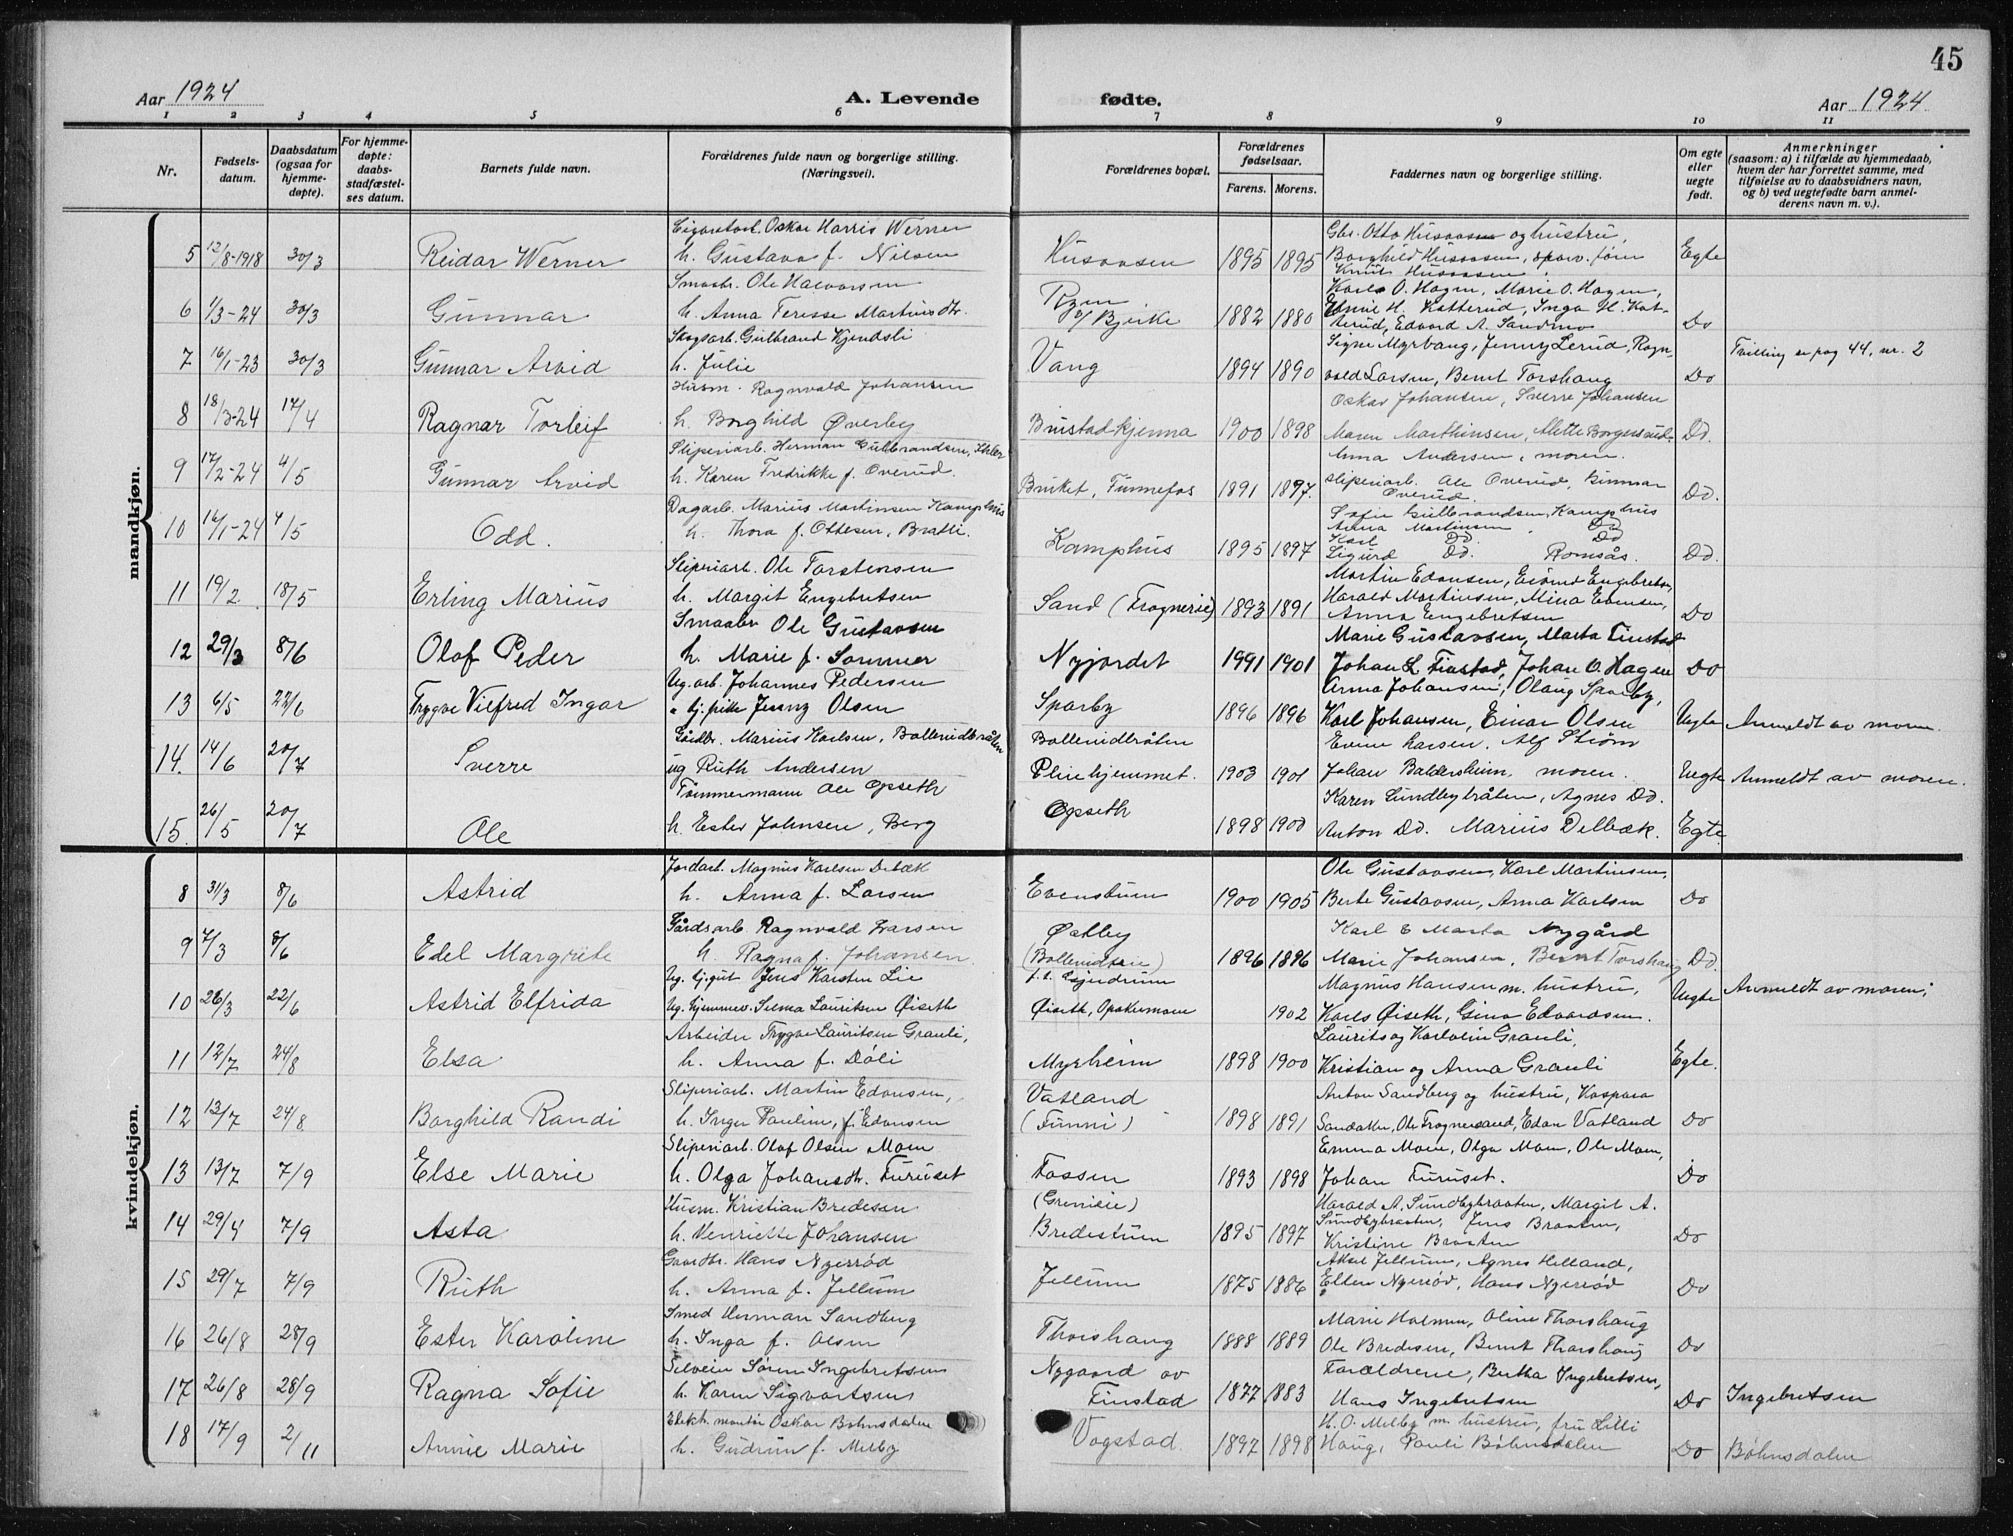 45
Aar 1924
A. Levende fødte.
Aar 1924
1 2 3 4 5 6 7 8 9 10 11
Nr.
Fødsels-
datum.
Daabsdatum
(ogsaa for
hjemme-
døpte).
For hjemme-
døpte:
daabs-
stadfæstel-
ses datum.
Barnets fulde navn.
Forældrenes fulde navn og borgerlige stilling.
(Næringsvei).
Forældrenes bopæl.
Forældrenes
fødselsaar.
Farens. Morens.
Faddernes navn og borgerlige stilling.
Om egte
eller
uegte
født.
Anmerkninger
(saasom: a) i tilfælde av hjemmedaab,
hvem der har forrettet samme, med
tilføielse av to daabsvidners navn,
og b) ved uegtefødte barn anmel-
derens navn m. v.).
mandkjøn.
Oskar Harris Werner Gbr. Otto Husaasen og hustru,
5 12/8-1918 30/3 Reidar Werner h. Gustava f. Nilsen Husaasen 1895 1895 Borghild Husaasen, Egte
Knut Husaasen
Smaabr. Ole Halvorsen Karls O. Hagen, Marie O. Hagen,
6 1/3-24 30/3 Gunnar h. Anna Teresse Martinsdtr. Ryen u/ Bjerke 1882 1880 H. Katterud, Inga H. Kat-
terud, Edvard A. Sandmo Do
Skogsarb. Gulbrand Kjendsli Signe Myrvang, Jenny Lerud, Ragn-
7 16/1-23 30/3 Gunnar Arvid h. Julie Vang 1894 1890 vald Larsen, Bernt Torshaug Do Tvilling se pag 44, nr. 2
Husm. Ragnvald Johansen Oskar Johansen, Sverre Johansen
8 18/3-24 17/4 Ragnar Torleif h. Borghild Øverby Brustadkjenna 1900 1898 Maren Marthinsen, Alette Borgersrud. Do.
Sliperiarb. Herman Gulbrandsen, Anna Andersen, moren.
9 17/2-24 4/5 Gunnar Arvid h. Karen Fredrikke f. Overud. Bruket, Funnefos 1891 1897 Sliperiarb. Ole Overud, Gunnar
Overud. Do.
Dagarb. Marius Martinsen Kamphus Sofie Gulbrandsen, Kamphus
10 16/1-24 4/5 Odd. h. Thora f. Ottesen, Bratli. Kamphus 1895 1897 Anna Martinsen Do
Karl Do. Do
Sigurd Do. Romsås. Do.
Sliperiarb. Ole Torstensen Martin Edvnsen, Engebretsen,
11 19/2 18/5 Erling Marius h. Margit Engebretsen Sand (Trognerie) 1893 1891 Harald Martinsen, Mina Evensen,
Anna Engebretsen Do
Smaabr Ole Gustavsen Marie Gustavsen, Marta Finstad
12 29/3 8/6 Olaf Peder h. Marie f. Sommer Nyjordet 1991 1901 Johan L. Finstad, Johan O. Hagen Do
Ug. arb. Johannes Pedersen Anna Johansen, Olaug Sparby,
13 6/5 22/6 Trygve Vilfred Ingar Jenny Olsen Sparby 1896 1896 Karl Johansen, Einar Olsen Uegte Anmeldt av moren.
Gårdbr. Marius Karlsen, Bollerudbråten Bollerudbråten Even Larsen. Alf Strøm
14. 14/6 20/7 Sverre ug Ruth Andersen Pleiehjemmet. 1903 1901 Johan Baldersheim, moren. Uegte Anmeldt av moren.
Tømmermann Ole Opseth Opseth Karen Sundbybråten, Agnes Do.
15. 26/5 20/7 Ole h. Ester Johnsen, Berg 1898 1900 Anton Do. Marius Delbæk. Egte
kvindekjøn.
Jordarb. Magnus Karlsen Ole Gustavsen, Karl Martinsen,
8 31/3 8/6 Astrid h. Anna f. Larsen Evenstuen 1900 1905 Berte Gustavsen, Anna Karlsen Do
Gårdsarb. Ragnvald Larsen Østby Karl E Marta Nygård
9 7/3 8/6 Edel Margrete h. Ragna f. Johansen. 1896 1886 Marie Johansen, Bernt Torshaug Do.
Ug. gut Jens Karsten Lie Magnus Hansen m. hustru,
10 26/3 22/6 Astrid Elfrida Selma Lauritsen Øiseth Øiseth, Opakermoen 1902 Karls Øiseth, Gina Edvardsen. Uegte Anmeldt av moren;
Arbeider Trygve Lauritsen Granli, Laurits og Karoline Granli,
11 12/7 24/8 Elsa h. Anna f. Døli Myrheim 1898 1900 Kristian og Anna Granli Egte.
Sliperiarb. Martin Edvnsen, Vatland Anton Sandberg og hustru, Kaspara
12 13/7 24/8 Borghild Randi h. Inger Pauline, f. Edvnsen (Funni) 1898 1891 Ole Trognersand, Edan Vatland Do
Sliperiarb. Olaf Olsen Moen Emma Moen, Olga Moen, Ole Moen,
13 13/7 7/9 Else Marie h. Olga Johansdtr. Furuset Fossen 1893 1898 Johan Furuset. Do
Husm. Kristian Bredesen Harald A. Sundbybraaten, Margit A.
14 29/4 7/9 Asta h. Henriette Johansen Bredestuen 1895 1897 Sundbybraaten, Jens Braaten,
Kristine Braaten Do
Gaardbr. Hans Nyerrød Aksel Jellum, Agnes Helland,
15 29/7 7/9 Ruth h. Anna f. Jellum Jellum 1875 1886 Ellen Nyerrød, Hans Nyerrød Do
Smed Herman Sandberg Marie Holmen, Oline Thorshaug
16 26/8 28/9 Ester Karoline h. Inga f. Olsen Thorshaug 1888 1889 Ole Bredesen, Bernt Thorshaug Do
Søren Ingebretsen Nygaard av Forældrene, Bertha Ingebretsen,
17 26/8 28/9 Ragna Sofie h. Karen Sigvartsen Finstad 1877 1883 Hans Ingebretsen Do Ingebretsen
Elektr. montør Oskar Bøhnsdalen H. O. Melby m. hustru, fru Lilli
18 17/9 2/11 Annie Marie h. Gudrun f. Melby Vogstad 1897 1898 Haug, Pauli Bøhnsdalen Do Bøhnsdalen